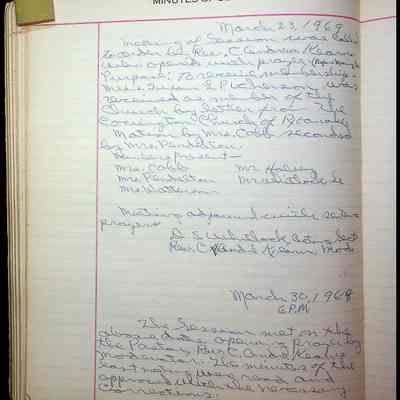 MINUTES OF
March 23, 1969
Meeting of Session was called
to order by Rev. C. Andrew Kearns
who opened with prayer.
Purpose: To receive membership-
Mrs. Susan E. was
received as member of the
Church by letter from The
Covington Church of Roanoke
Motion by Mrs. Cobb seconded
by Mrs. Pendleton.
Members present—
Mrs. Cobb Mr. Halsey
Mrs. Pendleton Mr. Whitlock Sr
Mrs. Watterson
Meeting adjourned with
prayer
S. Whitlock Acting Sect
Rev. C. Kearns Mod.
March 30, 1969
6 P.M.
The Session met on the
above date opening prayer by
the Pastor, Rev. C. Andrew Kearns
moderator. The minutes of the
last meeting were read and
approved with the necessary
corrections.